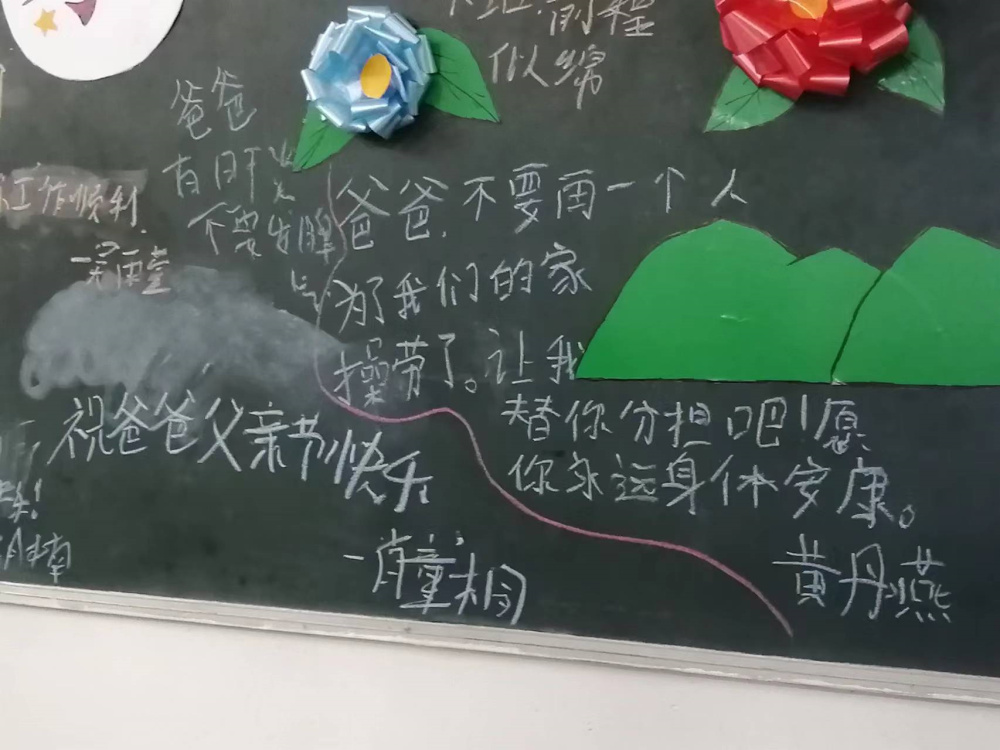 似绵
爸爸
有时
不要发脾
工作顺利
爸爸,不要再一个人
为了我们的家
操劳了。让我
替你分担吧!愿
你永远身体安康。
黄丹燕
祝爸爸父亲节快乐
一肖童桐